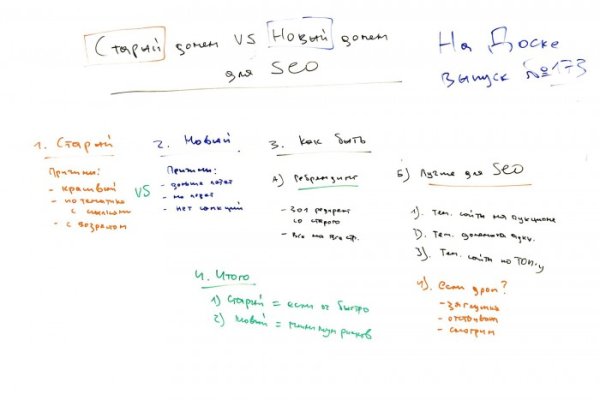 Старый домен VS Новый домен
для SEO
На Доске
выпуск №173
1. Старый
Причины:
- красивый
- по тематике
с ссылками
- с возрастом
VS
2. Новый
Причины:
- дольше
- не
- нет санкций
3. Как быть
А) Ребрендинг
- 301 редирект
со старого
- Все на все стр.
Б) Лучше для SEO
1). Тем. сайты на аукционе
2). Тем. домены аукц.
3). Тем. сайты по ТОП-у
4). если дроп?
- заглушка
- отстаиваем
- смотрим
4. Итого
1) Старый = если ок быстро
2) Новый = минимум рисков